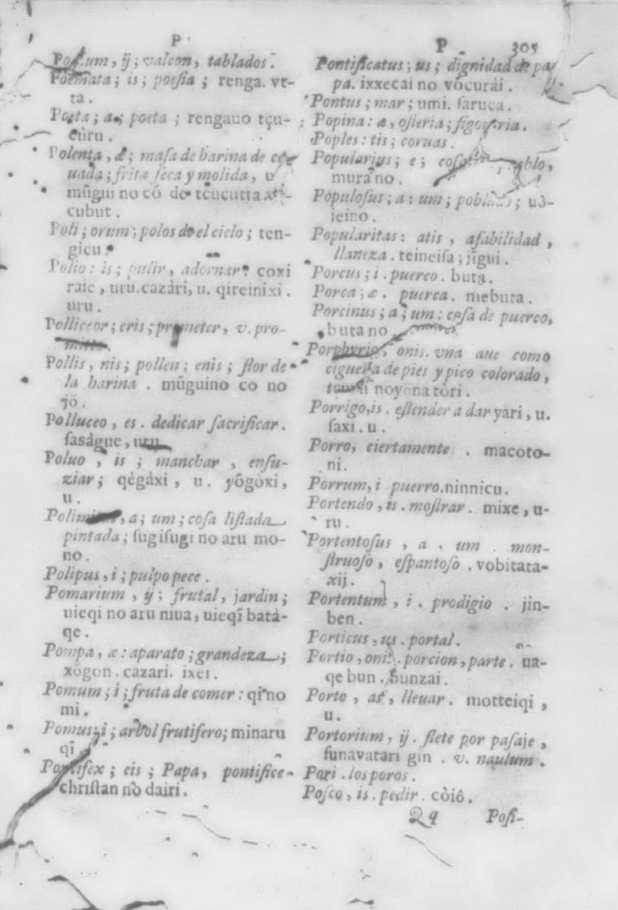 P
um, ÿ; valcon, tablados.
Poemata; is; poesia; renga. vt-
ta.
Poeta; a; poeta; rengauo tçu-
curu.
Polenta, æ; masa de harina de
uada; frita seca y molida, u
mŭgui no có de tçucutta
cubut.
Poli; orum; polos de el cielo; ten-
gicu.
Polio: is; pulir, adornar: coxi
raie, uru. cazàri, u. qireinixi.
uru.
Polliceor; eris; prometer, v. pro-
Pollis, nis; pollen; enis; flor de
la harina. mŭguino co no
jò.
Polluceo, es. dedicar sacrificar.
sasàgue, uru.
Poluo, is; manchar, ensu-
ziar; qègàxi, u. yôgòxi,
u.
a; um; cosa listada
pintada; sugisugi no aru mo-
no.
Polipus, i; pulpo pece.
Pomarium, ÿ; frutal, jardin;
uieqi no aru niua, uieqĩ batà-
qe.
Pompa, æ: aparato; grandeza;
xògon. cazari. ixei.
Pomum; i; fruta de comer: qi no
mi.
Pomus; i; arbol frutifero; minaru
qĩ
Pontifex; cis; Papa, pontifice
christan no dairi.
P 305
Pontificatus; us; dignidad de pa
pa. ixxecai no vòcurài.
Pontus; mar; umi. saruca.
Popina: æ, osteria;
Poples: tis; coruas.
Popularius; e;
mura no.
Populosus; a: um; u3-
jeino.
Popularitas: atis, afabilidad,
llaneza. teineisa; jĩgui.
Porcus; i. puerco. buta.
Porca; æ. puerca. mebuta.
Porcinus; a; um: cosa de puerco,
buta no
Porphyrio, onis. vna aue como
cigueña de pies y pico colorado,
noyona tòri.
Porrigo, is. estender a dar yàri, u.
saxi. u.
Porro, ciertamente. macoto-
ni.
Porrum, i puerro. ninnicu.
Portendo, is. mostrar. mixe, u-
ru.
Portentosus, a. um. mon-
struoso, espantoso. vobitata-
xij.
Portentum, i. prodigio. jin-
ben.
Porticus, us. portal.
Portio, onis. porcion, parte. ua-
qe bun. bunzai.
Porto, as, lleuar. motteiqi,
u.
Portorium, ÿ. flete por pasaje,
funavatari gin. v. naulum.
Pori. los poros.
Posco, is. pedir. còiô.
Qq Posi-